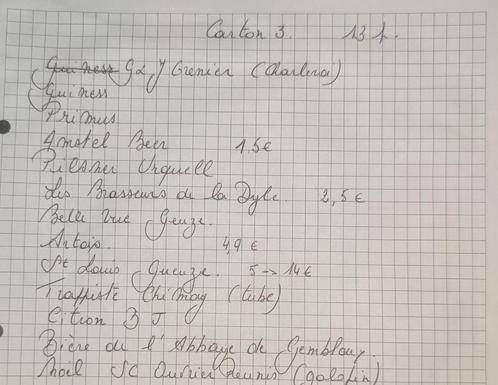 Carton 3. 13 p.
Guiness G2, Y Grenier (Charleroi)
Guiness
Primus
Amstel Beer 1,5€
Pilsner Urquell
Les Brasseurs de la Dyle. 2,5€
Belle Vue Geuze.
Artois. 4,9€
St Louis Gueuze. 5 -> 14€
Trappiste Chimay (tube)
Citron B J
Bière de l'Abbaye de Gembloux.
Noël